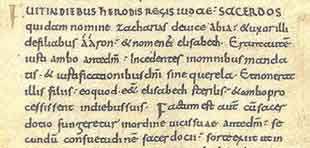 FUIT IN DIEBUS HERODIS REGIS IUDAEAE SACERDOS
quidam nomine zacharias de uice abia · & uxor illi
de filiabus aaron · & nomen ei elisabeth · Erant aut
iusti ambo ante dm̄ · Incedentes in omnibus manda
tis · & iustificationibus dn̄i sine querela · Et non erat
illis filius · eo quod e&̄ elisabeth sterilis · & ambo pro
cessissent in diebus suis · Factum est aut cū sacer
dotio fungeretur in ordine uicis suae ante dm̄ · se
cundū consuetudinē sacerdotii · sorte exiit ut in